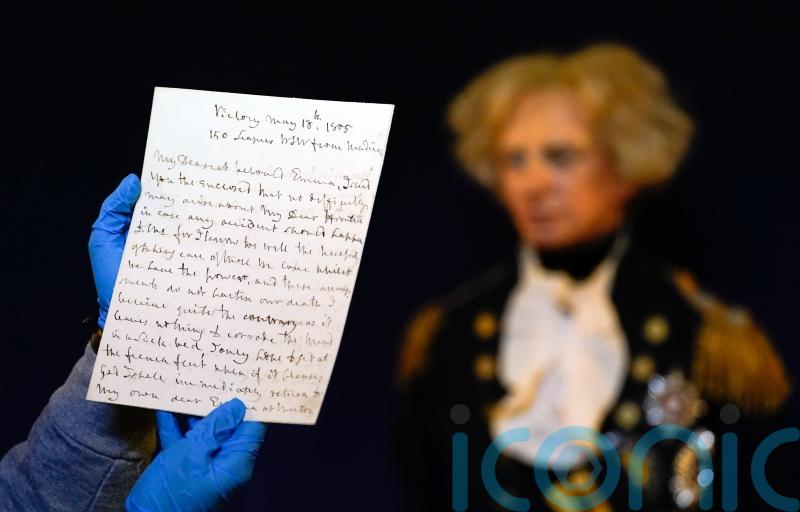 Victory May 18th: 1805
150 Leagues WSW from Madeira
My Dearest beloved Emma, I send
You the enclosed that no difficulty
may arise about My Dear Horatia
in case any accident should happen
to me for I know too well the necessity
of taking care of those we love whilst
we have the power, and these arrange
ments do not hasten our death. I
believe quite the contrary as it
leaves nothing to corrode the mind
in a sick bed, I only hope to get at
the french fleet when if it pleases
God I shall immediately return to
My own dear Emma at Merton
iconic